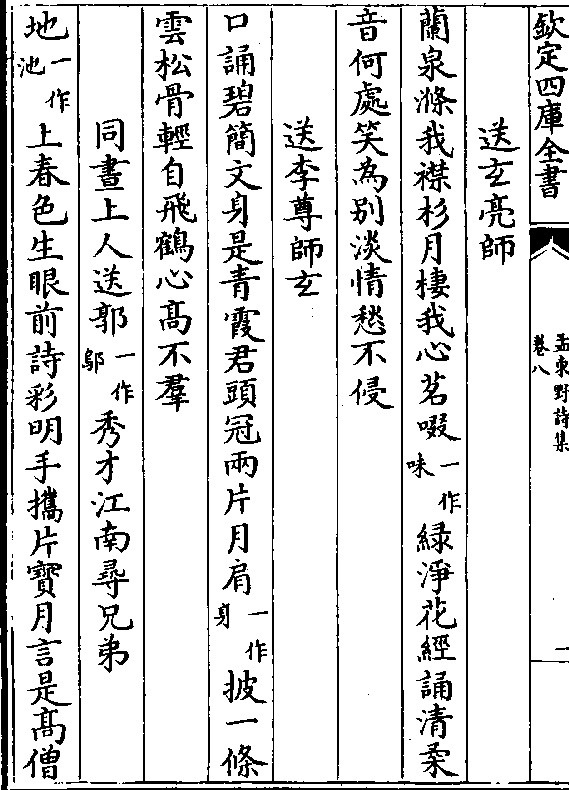 欽定四庫全書
孟東野詩集
卷八
一
送玄亮師
蘭泉滌我襟杉月棲我心茗啜一作味綠淨花經誦清柔
音何處笑為別淡情愁不侵
送李尊師玄
口誦碧簡文身是青霞君頭冠兩片月肩一作身披一條
雲松骨輕自飛鶴心高不羣
同晝上人送郭一作鄔秀才江南尋兄弟
地一作池上春色生眼前詩彩明手攜片寶月言是高僧